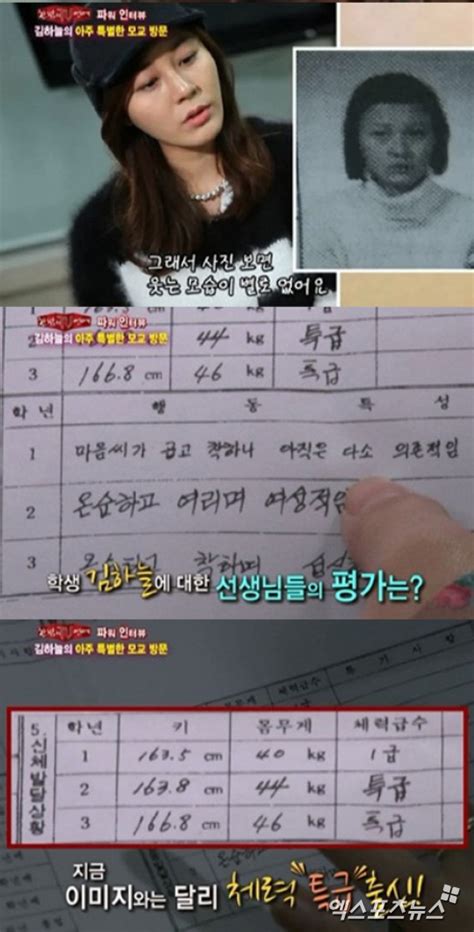 파워 인터뷰
김하늘의 아주 특별한 모교 방문
그래서 사진 보면
웃는 모습이 별로 없어요
파워 인터뷰
김하늘의 아주 특별한 모교 방문
2 44 kg 특급
3 166.8 cm 46 kg 특급
학년 행동특성
1 마음씨가 곱고 착하나 아직은 다소 의존적임
2 온순하고 여리며 여성적임
3 착하며
학생 김하늘에 대한 선생님들의 평가는?
파워 인터뷰
김하늘의 아주 특별한 모교 방문
5. 신체발달상황
학년 키 몸무게 체력급수
1 163.5 cm 40 kg 1급
2 163.8 cm 44 kg 특급
3 166.8 cm 46 kg 특급
지금
이미지와는 달리 체력 "특급" 출신!
엑스포츠뉴스